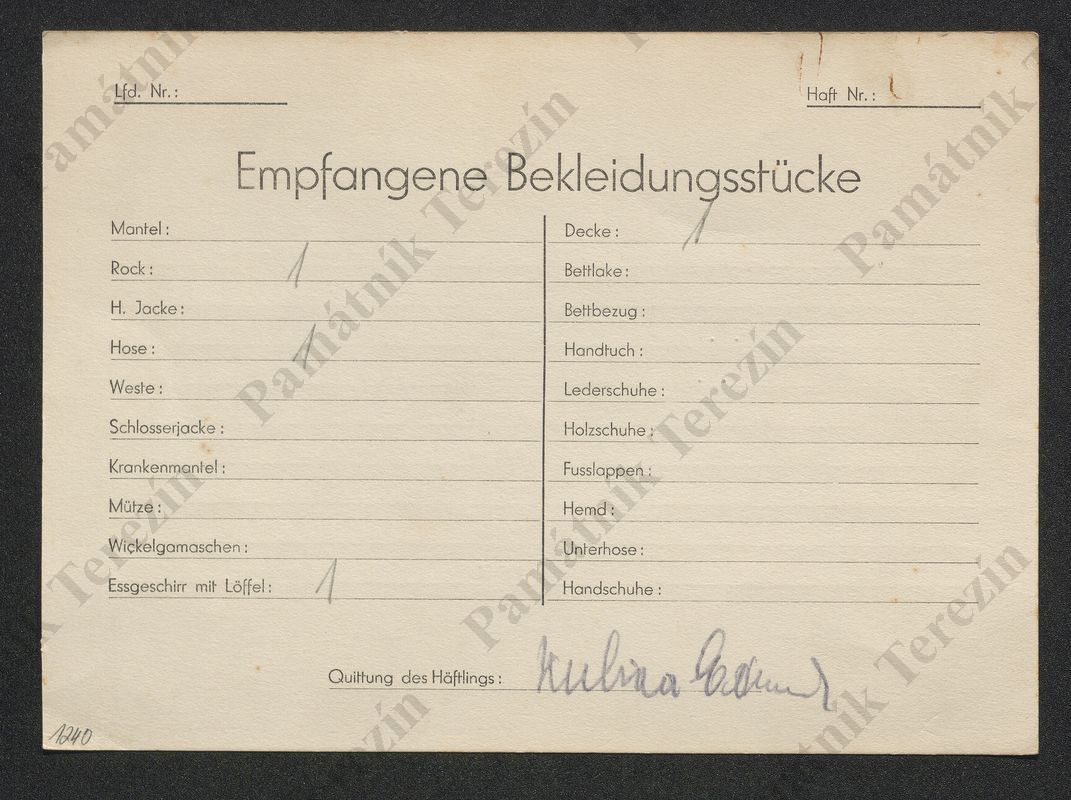 Lfd. Nr.:
Haft Nr.:
Empfangene Bekleidungsstücke
Mantel:
Rock: 1
H. Jacke:
Hose: 1
Weste:
Schlosserjacke:
Krankenmantel:
Mütze:
Wickelgamaschen:
Essgeschirr mit Löffel: 1
Decke: 1
Bettlake:
Bettbezug:
Handtuch:
Lederschuhe:
Holzschuhe:
Fusslappen:
Hemd:
Unterhose:
Handschuhe:
Quittung des Häftlings:
1240
Památník Terezín
Památník Terezín
Památník Terezín